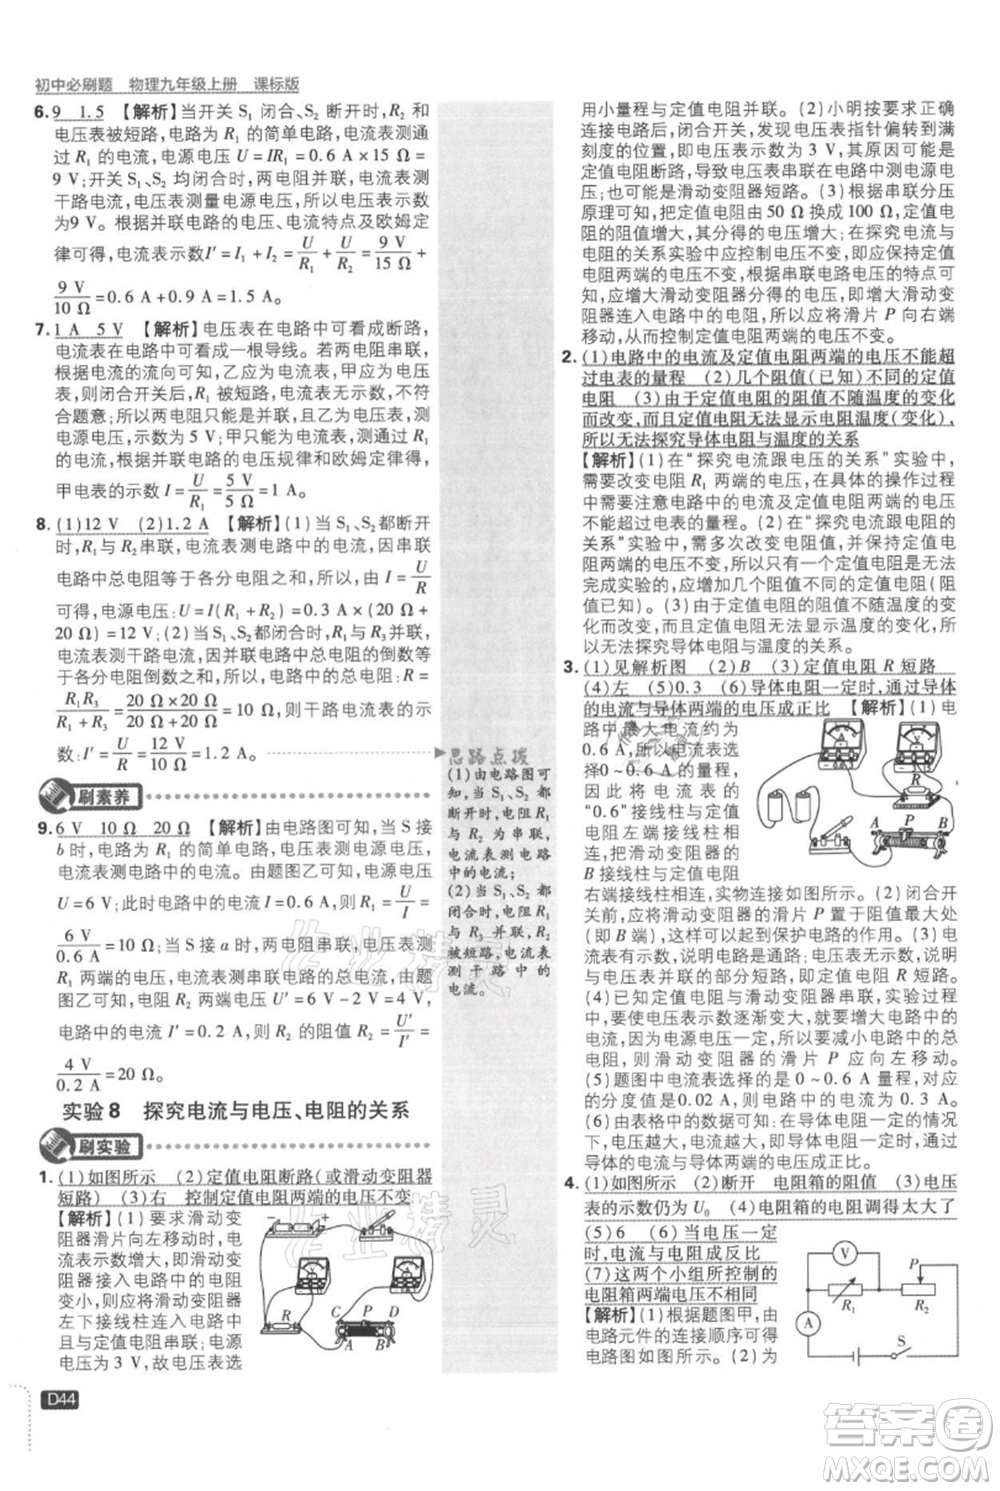 初中必刷题 物理九年级上册 课标版
6.9 1.5 【解析】当开关 S₁ 闭合、S₂ 断开时,R₂ 和
电压表被短路,电路为 R₁ 的简单电路,电流表测通
过 R₁ 的电流,电源电压 U = IR₁ = 0.6 A × 15 Ω =
9 V;开关 S₁、S₂ 均闭合时,两电阻并联,电流表测
干路电流,电压表测量电源电压,所以电压表示数
为9 V。根据并联电路的电压、电流特点及欧姆定
律可得,电流表示数I′ = I₁ + I₂ = U/R₁ + U/R₂ = 9 V/15 Ω +
9 V/10 Ω = 0.6 A + 0.9 A = 1.5 A。
7.1 A 5 V 【解析】电压表在电路中可看成断路,
电流表在电路中可看成一根导线。若两电阻串联,
根据电流的流向可知,乙应为电流表,甲为电压表,
则闭合开关后,R₁ 被短路,电流表无示数,不符
合题意;所以两电阻只能是并联,且乙为电压表,测
电源电压,示数为 5 V;甲只能为电流表,测通过 R₂
的电流,根据并联电路的电压规律和欧姆定律得,
甲电流表的示数 I = U/R₂ = 5 V/5 Ω = 1 A。
8.(1)12 V (2)1.2 A 【解析】(1)当 S₁、S₂都断开
时,R₁与 R₂串联,电流表测电路中的电流,因串联
电路中总电阻等于各分电阻之和,所以,由 I = U/R
可得,电源电压:U = I(R₁ + R₂) = 0.3 A × (20 Ω +
20 Ω) = 12 V;(2)当 S₁、S₂都闭合时,R₁与 R₂并联,
电流表测干路电流,因并联电路中总电阻的倒数等于
各分电阻倒数之和,所以,电路中的总电阻:R =
R₁R₂/(R₁ + R₂) = 20 Ω × 20 Ω/(20 Ω + 20 Ω) = 10 Ω,则干路电流表的示
数:I′ = U/R = 12 V/10 Ω = 1.2 A。
刷素养
9.6 V 10 Ω 20 Ω 【解析】由电路图可知,当 S 接
b 时,电路为 R₁ 的简单电路,电压表测电源电压,
电流表测电路中的电流。由题图乙可知,电源电压
U = 6 V;此时电路中的电流 I = 0.6 A,则 R₁ = U/I =
6 V/0.6 A = 10 Ω;当 S 接 a 时,由电路图可知,两电阻串联,电压表测
R₂ 两端的电压,电流表测串联电路的总电流,由题
图乙可知,R₂ 两端的电压 U′ = 4 V,
电路中的电流 I′ = 0.2 A,则 R₂ 的阻值 R₂ = U′/I′ =
4 V/0.2 A = 20 Ω。
实验8 探究电流与电压、电阻的关系
刷实验
1.(1)如图所示 (2)定值电阻断路(或滑动变阻器
短路) (3)右 控制定值电阻两端的电压不变
【解析】(1)要求滑动变
阻器滑片向左移动时,电
流表示数增大,说明滑动
变阻器接入电路中的电阻
变小,所以滑动变阻器应
与定值电阻串联;电源电
压为 3 V,故电压表选
A P B
R
C D
思路点拨
(1)由电路图可
知,当 S₁、S₂ 都
断开时,电阻 R₁
与 R₂ 串联,电
流表测电路中
的电流;
(2)当 S₁、S₂ 都
闭合时,电阻 R₁
与 R₂ 并联,电压
表被短路,电流
表测干路中的
电流。
用小量程与定值电阻并联。(2)小明按要求正确
连接电路后,闭合开关,发现电压表指针偏转到满
刻度的位置,即电压表示数为 3 V,其原因可能是
定值电阻断路,导致电压表串联在电路中测电源电
压;也可能是滑动变阻器短路。(3)根据串联分压
原理可知,把定值电阻由 50 Ω 换成 100 Ω,定值电
阻两端的电压增大;探究电流与电阻的关系实验中应控制定值电阻两端的电压不变,即应减小定值电
阻两端的电压,根据串联电路电压的特点可知
应增大滑动变阻器分得的电压,所以应增大滑动变
阻器连入电路中的电阻,所以滑片 P 应向右端
移动,从而控制定值电阻两端的电压不变。
2.(1)电路中的电流及定值电阻两端的电压不能超
过电表的量程 (2)几个阻值(已知)不同的定值
电阻 (3)由于定值电阻的阻值不随温度的变化
而改变,而且定值电阻无法显示电阻温度(变化),
所以无法探究导体电阻与温度的关系
【解析】(1)在“探究电流跟电压的关系”实验中,
需要改变定值电阻 R₁ 两端的电压,在具体的操作
中需要注意电路中的电流及定值电阻两端的电压
都不能超过电表的量程。(2)在“探究电流跟电阻的
关系”实验中,需多次改变电阻阻值,但他们无法
完成实验的原因是缺少几个阻值不同的定值电阻(阻
值已知)。(3)由于定值电阻的阻值不随温度的变
化而改变,而且定值电阻无法显示温度的变化,所
以无法探究导体电阻与温度的关系。
3.(1)见解析图 (2)B (3)定值电阻 R 短路
(4)左 (5)0.3 (6)导体电阻一定时,通过导体
的电流与导体两端的电压成正比 【解析】(1)电
路中最大电流约为
0.6 A,所以电流表
选择0 ~ 0.6 A 的量程,
因此将电流表的
“0.6”接线柱与定值
电阻左端接线柱相
连,将滑动变阻器的
B 接线柱与定值电阻
右端接线柱相连,实物连接如图所示。(2)闭合开
关前,应将滑动变阻器的滑片 P 置于阻值最大处
(即 B 端),这样可以起到保护电路的作用。(3)电
流表有示数,说明电路中无断路,电压表无示数,说明
与电压表并联的部分短路,即定值电阻 R 短路。
(4)已知定值电阻与滑动变阻器串联,实验中
要使电压表示数变大,根据欧姆定律可知应增大电路中的
电流,因电源电压不变,所以要减小电路中的总电
阻,则滑动变阻器的滑片 P 应向左移动。
(5)题图中电流表选择的是 0 ~ 0.6 A 的量程,
分度值是 0.02 A,则电流表的示数是 0.3 A。
(6)分析表中的数据可知,在导体电阻一定的情况下,
电压越大,电流越大,且电流与电压的比值为定值,
即导体电阻一定时,电流与电压成正比。
A P B
4.(1)如图所示 (2)断开 电阻箱的阻值 (3)电压
表的示数仍为 U₀ (4)电阻箱的电阻调得太大了
(5)6 (6)当电压一定
时,电流与电阻成反比
(7)这两个小组所控制的
电阻箱两端电压不相同
【解析】(1)根据题图甲,由
电路元件的连接顺序可得
电路图如图所示。(2)为
V R₁ R₂ A S
D44
作业精灵
作业精灵
答案卷
MXQE.COM